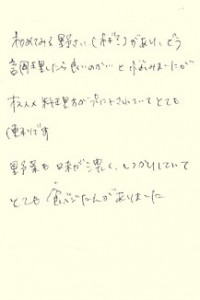 初めてみる野さい(ネギ?)があり、どう
調理したら良いのか…と悩みましたが
料理方がプリントされていてとても
便利です
野菜も味が濃く、しっかりしていて
とても食べごたえがありました